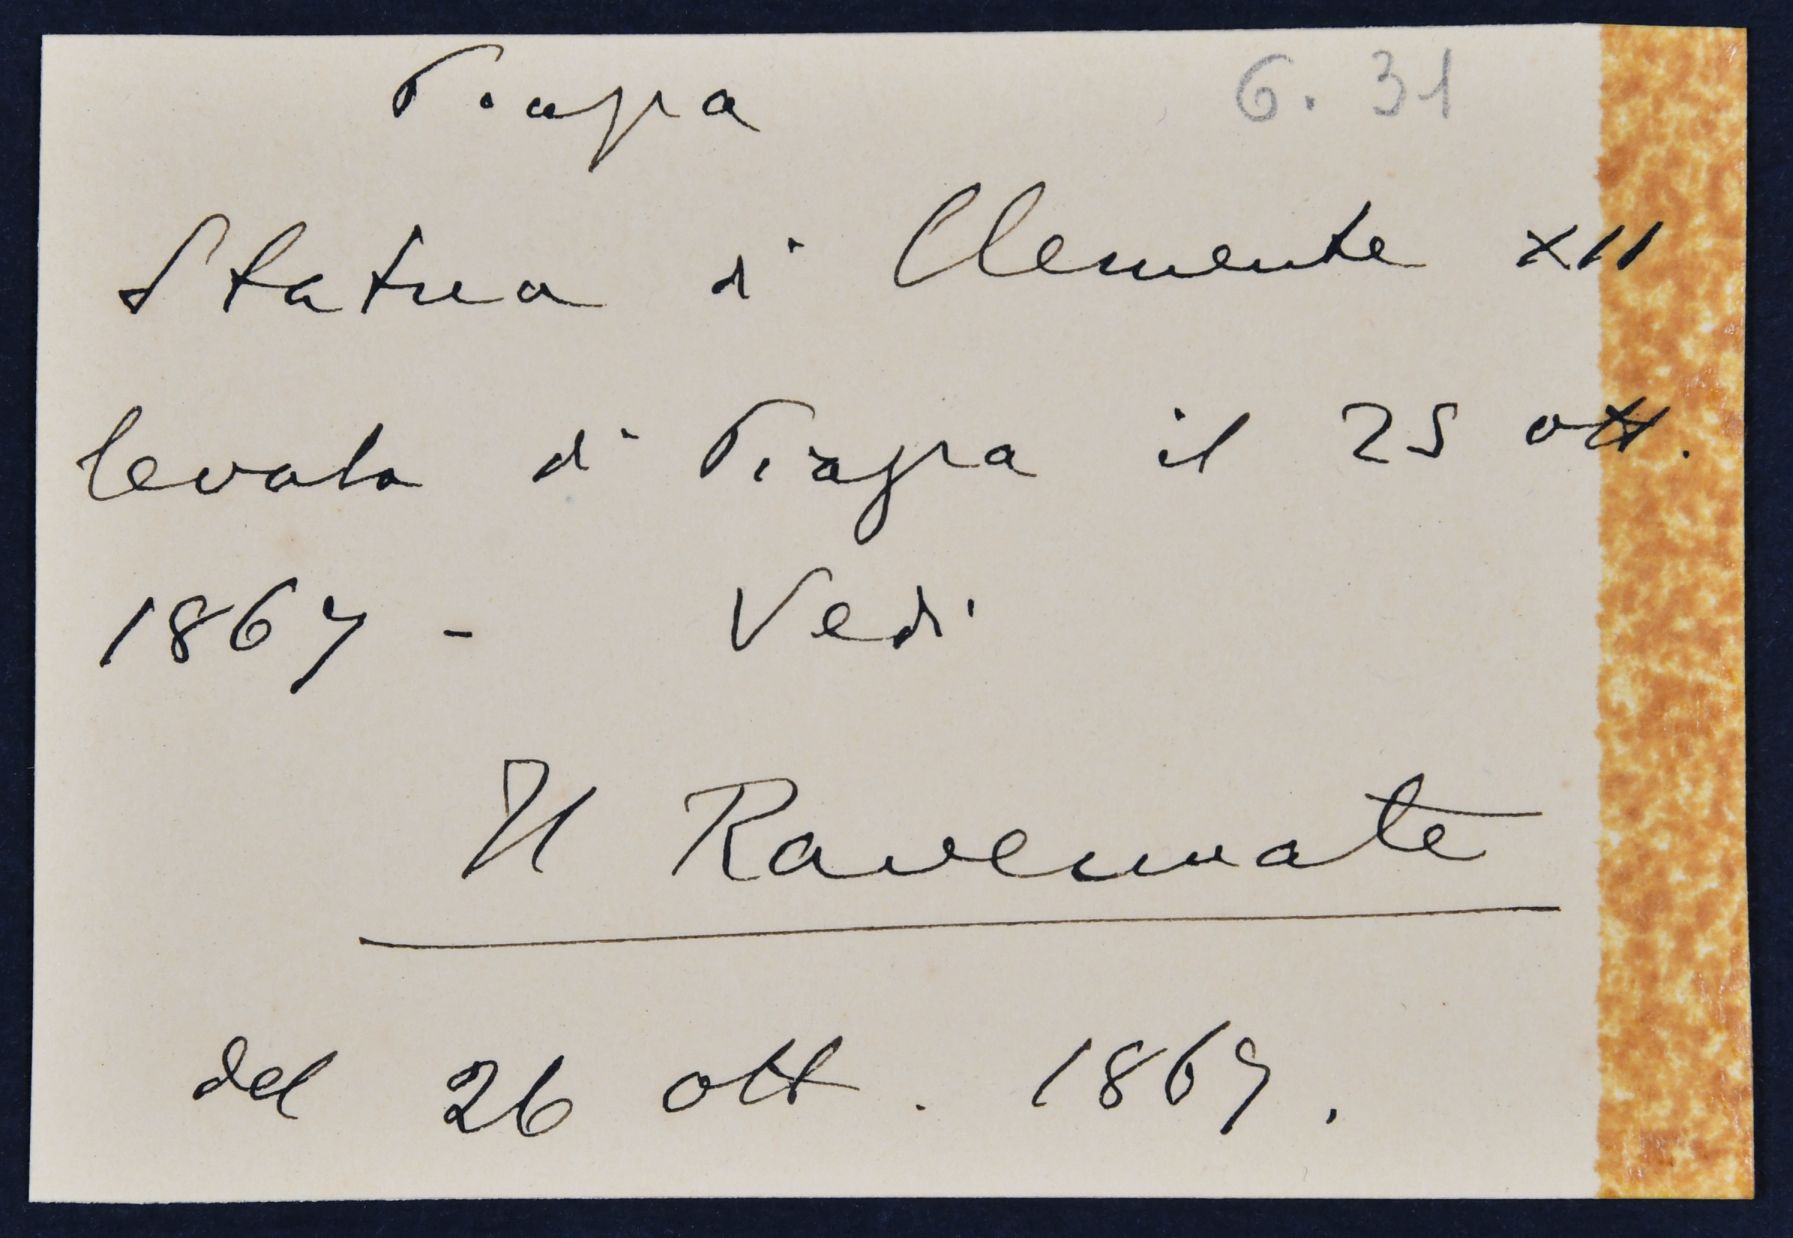 Piazza 6. 31
Statua di Clemente XII
levata di Piazza il 25 ott.
1867 - Vedi
Il Ravennate
del 26 ott. 1867.